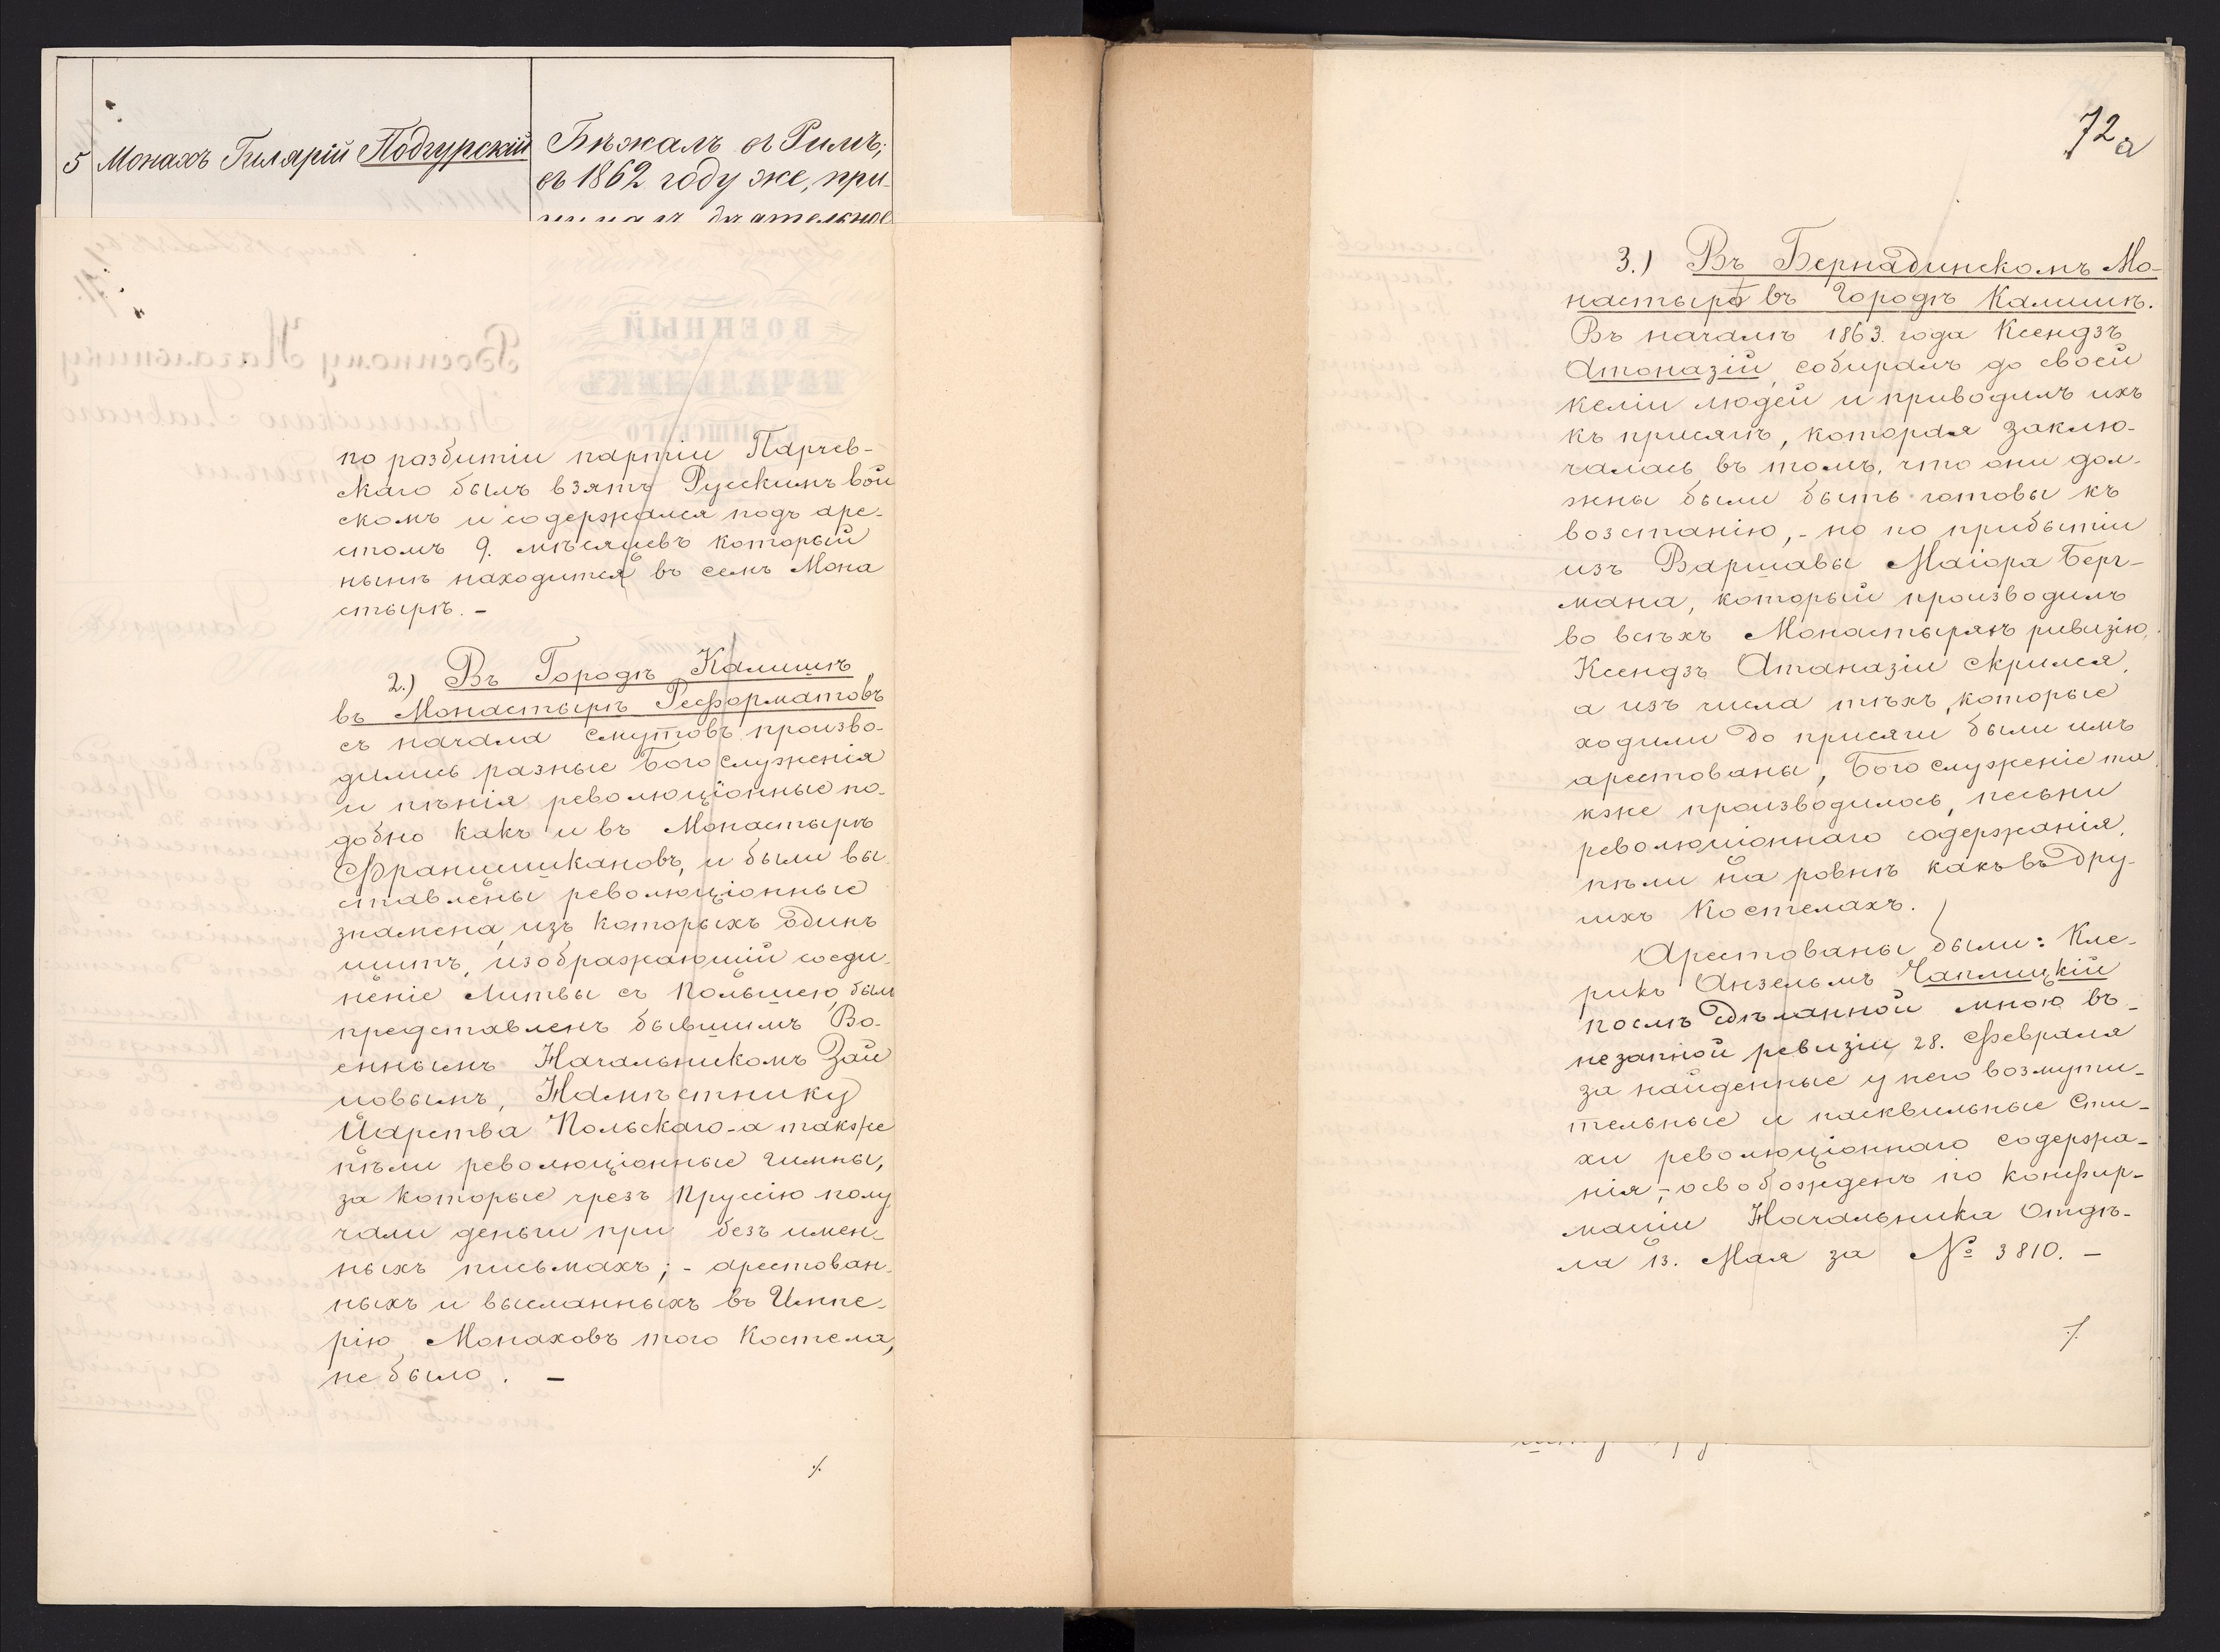 5 Монахъ Гилярій Подгурскій
Бѣжалъ въ Римъ;
въ 1862 году же, при-
по разбитіи партіи Парчев-
скаго былъ взятъ Русскимъ вой
скомъ и содержался подъ аре-
стомъ 9. мѣсяцевъ который
нынѣ находится въ семъ Мона
стырѣ. –
2.) Въ Городѣ Калишѣ
въ Монастырѣ Реформатовъ
съ начала смутовъ произво-
дились разные Богослуженія
и пѣнія революціонные по-
добно какъ и въ Монастырѣ
Францишкановъ, и были вы
ставлены революціонные
знамена, изъ которыхъ одинъ
щитъ, изображающій соеди-
неніе Литвы съ Польшею, былъ
представленъ бывшимъ Во-
еннымъ Начальникомъ Зай
цовымъ, Намѣстнику
Царства Польскаго – а также
пѣли революціонные гимны,
за которые чрезъ Пруссію полу
чали деньги при безъ имен-
ныхъ письмахъ; – арестован-
ныхъ и высланныхъ въ Импе-
рію Монаховъ того Костела,
не было. –
./.
72а
3.) Въ Бернадинскомъ Мо-
настырѣ въ Городѣ Калишѣ.
Въ началѣ 1863. года Ксендзъ
Атоназій, собиралъ до своей
келіи людей и приводилъ ихъ
къ присягѣ, которая заклю-
чалась въ томъ, что они дол-
жны были быть готовы къ
возстанію, – но по прибытіи
изъ Варшавы Маіора Берг-
мана, который производилъ
во всѣхъ Монастыряхъ ривизію,
Ксендзъ Атаназіи скрился,
а изъ числа тѣхъ, которые
ходили до присяги были имъ
арестованы, Богослуженіе та
кже производилось, песьни
революціоннаго содержанія,
пѣли на ровнѣ какъ въ дру-
гихъ Костелахъ.
Арестованы были: Кле-
рикъ Анзельмъ Чаплицкій
послѣ сдѣланной мною въ-
незапной ревизіи 28. Февраля
за найденные у него возмути-
тельные и пасквильные сти-
хи революціоннаго содержа-
нія, – освобожденъ по конфир-
маціи Начальника Отдѣ-
ла 13. Мая за № 3810. –
./.